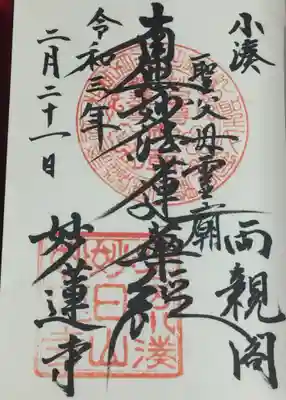 小湊
両親閣
聖父母霊廟
南無妙法蓮華経
令和三年
二月二十一日
妙蓮寺
妙日山